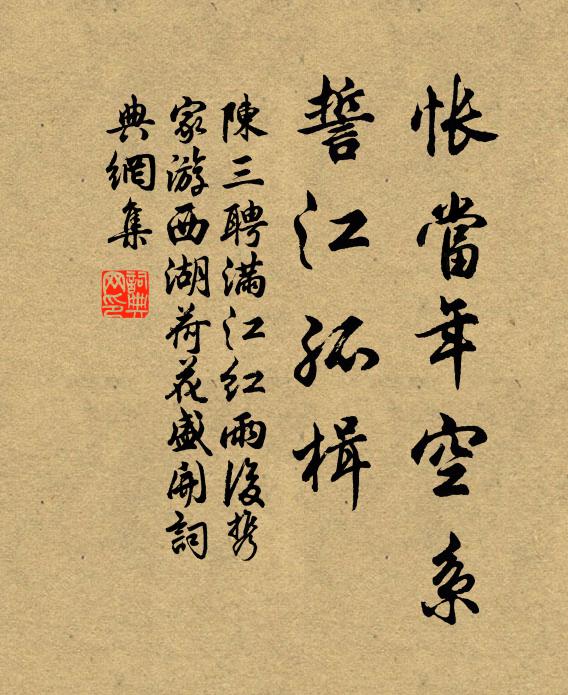 悵當年空系
誓江孤楫
陳三聘滿江紅雨後攜
家游西湖荷花盛開詞
典網集
詞典
网印